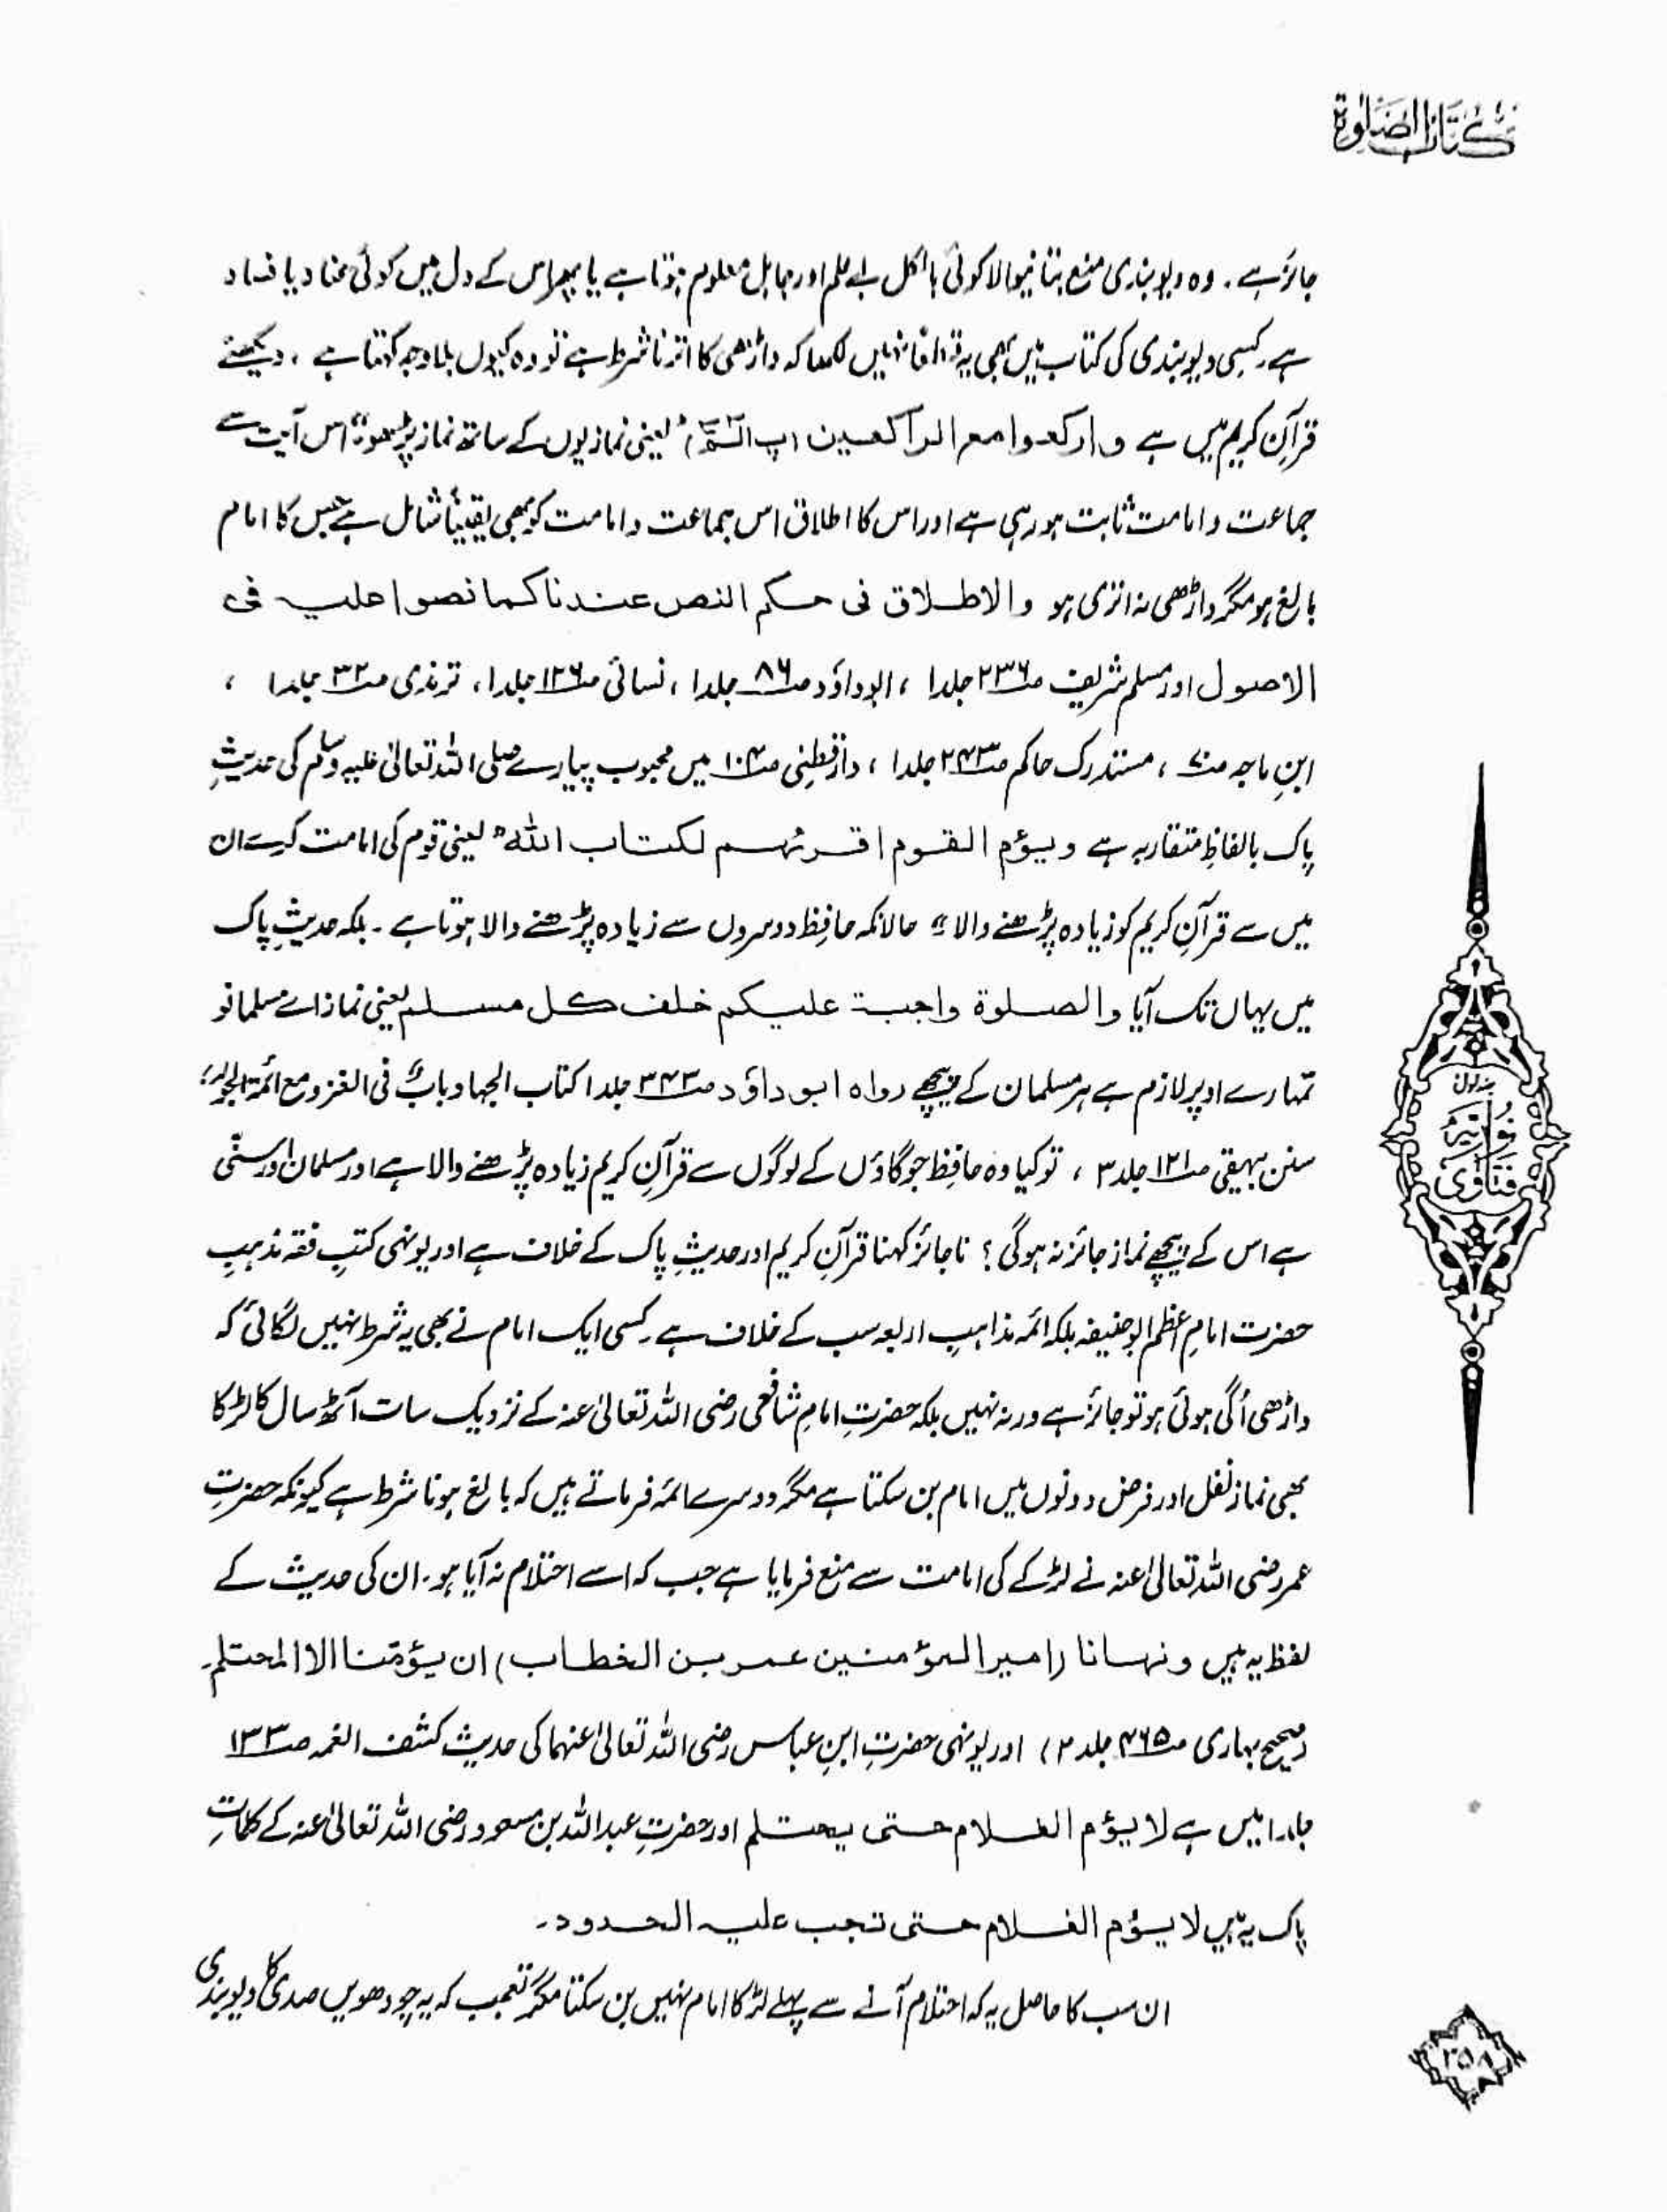 كتاب الصلوة
جائز ہے۔ وہ دیوبندی منع بتانیوالا کوئی بالکل بے علم اور جاہل معلوم ہوتا ہے یا پھر اس کے دل میں کوئی عناد یا فساد
ہے۔ کسی دیوبندی کی کتاب میں بھی یہ قطعاً نہیں لکھا کہ داڑھی کا اترنا شرط ہے تو وہ کیوں بلاوجہ کہتا ہے ، دیکھئے
قرآن کریم میں ہے وارکعوا مع الراکعین (پ الٓمّٓ) " یعنی نمازیوں کے ساتھ نماز پڑھو" اس آیت سے
جماعت و امامت ثابت ہو رہی ہے اور اس کا اطلاق اس جماعت و امامت کو بھی یقیناً شامل ہے جس کا امام
بالغ ہو مگر داڑھی نہ اتری ہو والاطلاق فی حکم النص عندنا کما نصوا علیہ فی
الاصول اور مسلم شریف صـ۲۳۶ جلد۱ ، ابوداؤد صـ۸۶ جلد۱ ، نسائی صـ۱۲۶ جلد۱، ترمذی صـ۳۲ جلد۱ ،
ابنِ ماجہ صـ۷۰ ، مستدرک حاکم صـ۲۴۳ جلد۱ ، دارقطنی صـ۱۰۴ میں محبوب پیارے صلی اللہ تعالیٰ علیہ وسلم کی حدیثِ
پاک بالفاظِ متقاربہ ہے ویؤم القوم اقرئهم لکتاب اللہ " یعنی قوم کی امامت کرے ان
میں سے قرآنِ کریم کو زیادہ پڑھنے والا " حالانکہ حافظ دوسروں سے زیادہ پڑھنے والا ہوتا ہے ۔ بلکہ حدیثِ پاک
میں یہاں تک آیا والصلوة واجبة علیکم خلف کل مسلم یعنی نماز اے مسلمانو
تمہارے اوپر لازم ہے ہر مسلمان کے پیچھے رواہ ابو داؤد صـ۳۴۳ جلد۱ کتاب الجہاد باب فی الغزو مع ائمة الجور،
سنن بیہقی صـ۱۲۱ جلد۳ ، تو کیا وہ حافظ جو گاؤں کے لوگوں سے قرآنِ کریم زیادہ پڑھنے والا ہے اور مسلمان اور سنّی
ہے اس کے پیچھے نماز جائز نہ ہو گی ؟ ناجائز کہنا قرآنِ کریم اور حدیثِ پاک کے خلاف ہے اور یونہی کتبِ فقہ مذہبِ
حضرت امامِ اعظم ابو حنیفہ بلکہ ائمہ مذاہبِ اربعہ سب کے خلاف ہے۔ کسی ایک امام نے بھی یہ شرط نہیں لگائی کہ
داڑھی اُگی ہوئی ہو تو جائز ہے ورنہ نہیں بلکہ حضرتِ امامِ شافعی رضی اللہ تعالیٰ عنہ کے نزدیک سات آٹھ سال کا لڑکا
بھی نماز نفل اور فرض دونوں میں امام بن سکتا ہے مگر دوسرے ائمہ فرماتے ہیں کہ بالغ ہونا شرط ہے کیونکہ حضرتِ
عمر رضی اللہ تعالیٰ عنہ نے لڑکے کی امامت سے منع فرمایا ہے جب کہ اسے احتلام نہ آیا ہو۔ ان کی حدیث کے
لفظ یہ ہیں ونہانا (امیر المؤمنین عمر بن الخطاب) ان یؤمنا الا المحتلم
(صحیح بہاری صـ۴۶۵ جلد ۲) اور یونہی حضرتِ ابنِ عباس رضی اللہ تعالیٰ عنہما کی حدیث کشف الغمہ صـ۱۳۳
جلد۱ میں ہے لا یؤم الغلام حتی یحتلم اور حضرتِ عبداللہ بن مسعود رضی اللہ تعالیٰ عنہ کے کلماتِ
پاک یہ ہیں لا یؤم الغلام حتی تجب علیہ الحدود۔
ان سب کا حاصل یہ کہ احتلام آنے سے پہلے لڑکا امام نہیں بن سکتا مگر تعجب کہ یہ چودھویں صدی کا دیوبندی
جلد اول
نوریہ
فتاوی
۲۵۸